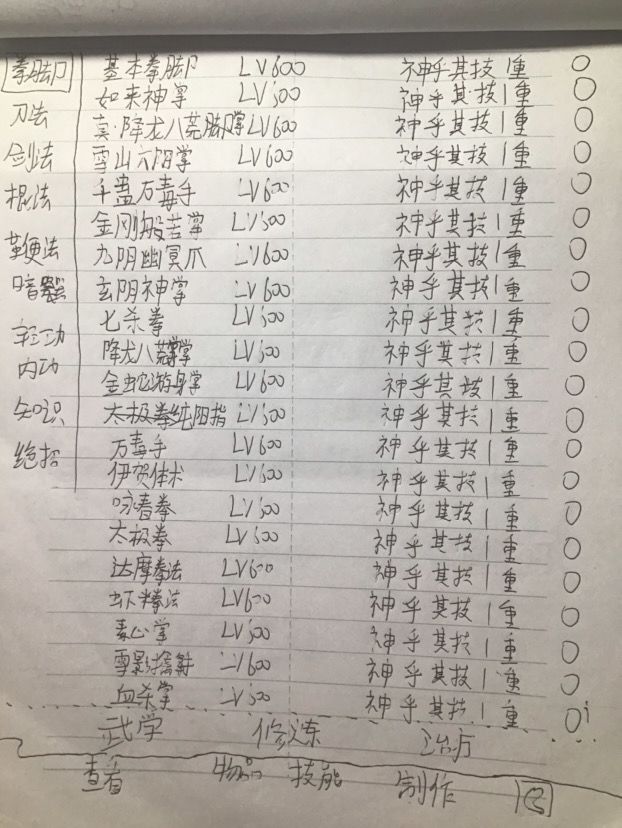 拳脚 基本拳脚 LV600 神乎其技1重 0
如来神掌 LV500 神乎其技1重 0
刀法 真·降龙八荒脚掌 LV600 神乎其技1重 0
剑法 雪山六阳掌 LV600 神乎其技1重 0
棍法 千蛊万毒手 LV600 神乎其技1重 0
金刚般若掌 LV500 神乎其技1重 0
鞭法 九阴幽冥爪 LV600 神乎其技1重 0
暗器 玄阴神掌 LV600 神乎其技1重 0
七杀拳 LV500 神乎其技1重 0
轻功 降龙八荒掌 LV500 神乎其技1重 0
内功 金蛇游身掌 LV600 神乎其技1重 0
知识 太极拳纯阳指 LV500 神乎其技1重 0
绝招 万毒手 LV600 神乎其技1重 0
伊贺体术 LV500 神乎其技1重 0
咏春拳 LV500 神乎其技1重 0
太极拳 LV500 神乎其技1重 0
达摩拳法 LV600 神乎其技1重 0
虾拳法 LV600 神乎其技1重 0
LV500 神乎其技1重 0
雪影擒 LV600 神乎其技1重 0
血杀掌 LV500 神乎其技1重 0
武学 修炼 治疗
查看 物品 技能 制作